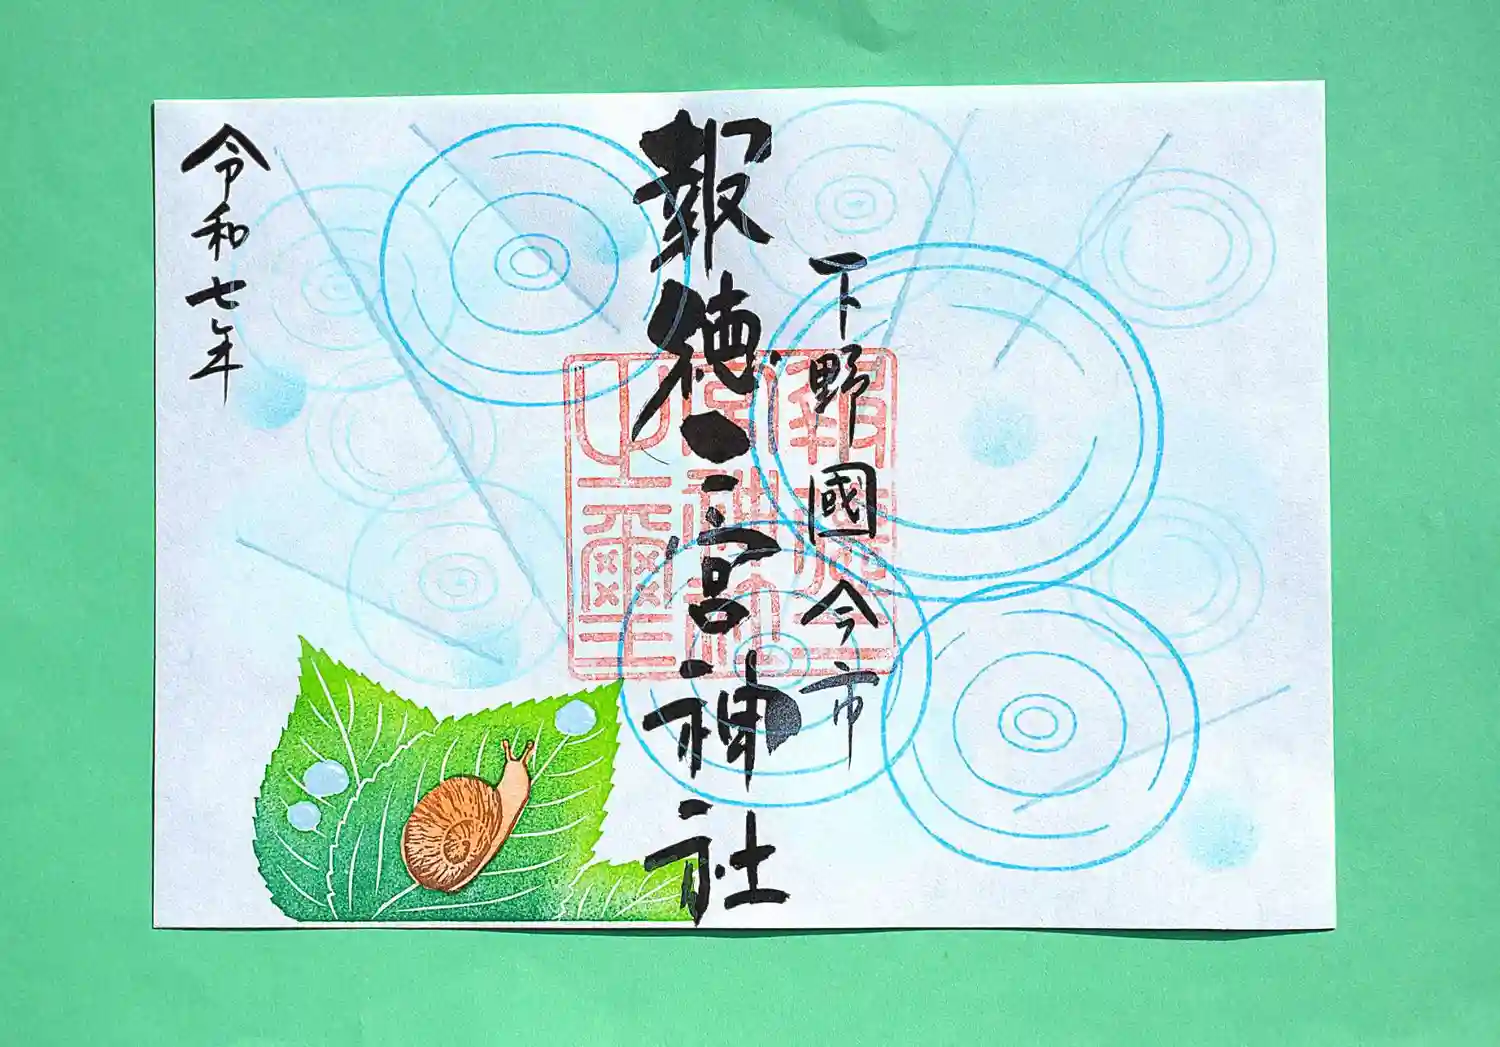 下野國今市
報徳二宮神社
令和七年
報徳二
宮神社
之璽